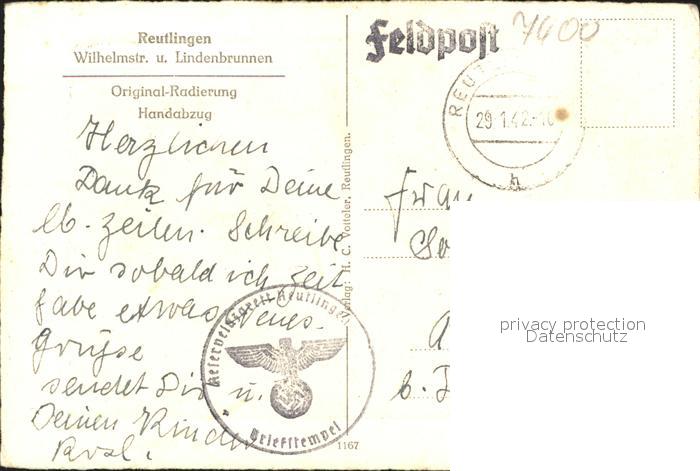 Reutlingen
Wilhelmstr. u. Lindenbrunnen
Original-Radierung
Handabzug
Feldpost
7400
29.1.42
h
Herzlichen
Dank für Deine
lb. Zeilen. Schreibe
Dir sobald ich Zeit
habe etwas Neues.
Grüsse
sendet Dir u.
Deinen Kinder
Verlag: H. C. Votteler, Reutlingen.
Reservelazarett Reutlingen
Briefstempel
1167
Frau
b.
privacy protection
Datenschutz